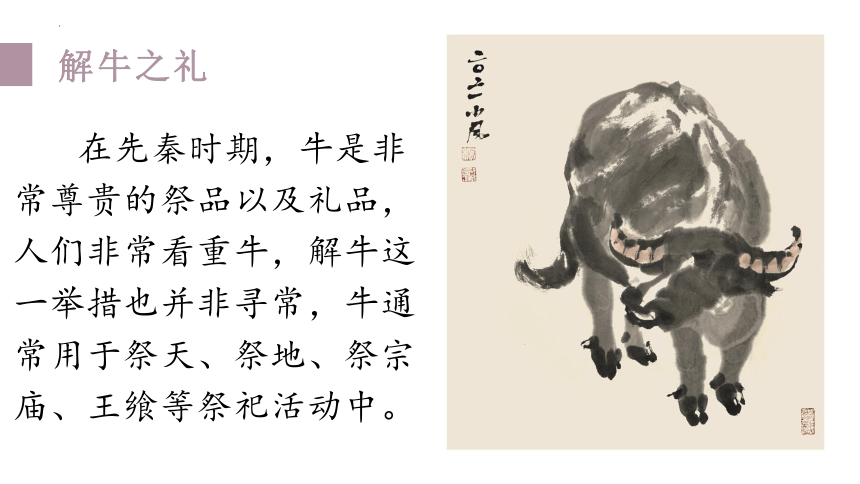 解牛之礼
在先秦时期，牛是非
常尊贵的祭品以及礼品，
人们非常看重牛，解牛这
一举措也并非寻常，牛通
常用于祭天、祭地、祭宗
庙、王飨等祭祀活动中。
二〇二一小风